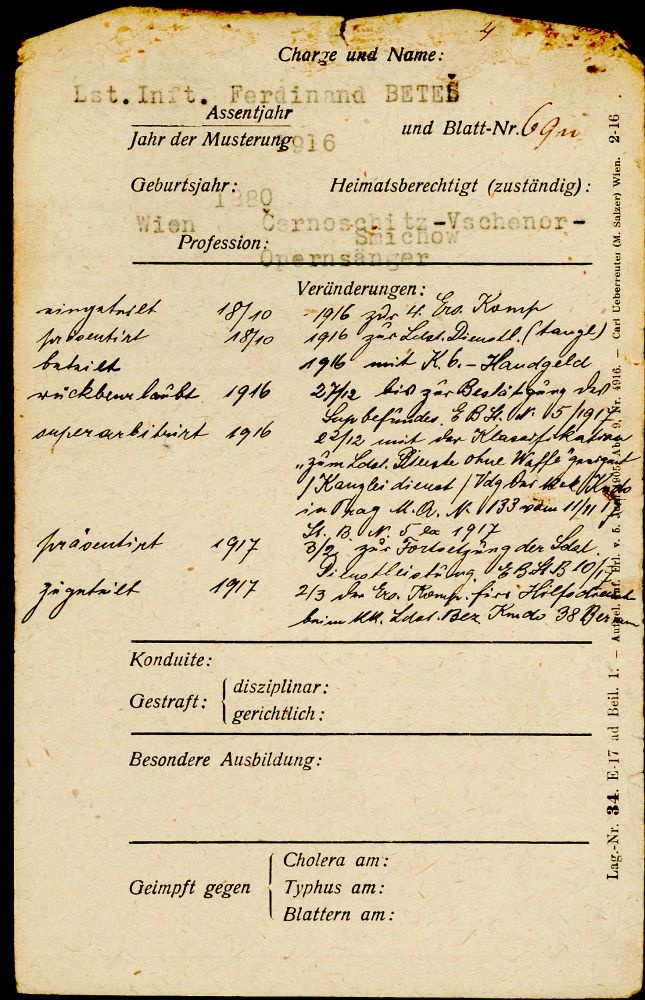 4
Charge und Name:
Lst.Inft. Ferdinand BETEŠ
Assentjahr
Jahr der Musterung 1916 und Blatt-Nr. 69
Geburtsjahr: Heimatsberechtigt (zuständig):
1880
Wien Černoschitz-Vschenor-
Profession: Smichow
Opernsänger
Veränderungen:
eingeteilt 18/10 1916 zur 4. Ers. Komp
präsentirt 18/10 1916 zur Ldst. Dienstl. (taugl)
beteilt 1916 mit K. 6.- Handgeld
rückbeurlaubt 1916 27/12 bis zur Bestätigung des
Supbefundes. E.B.St.N. 5/1917
superarbitrirt 1916 22/12 mit der Klassifikation
„zum Ldst. Dienste ohne Waffe" geeignet
/Kanzleidienst/ Vdg des Mil. Kmdo
in Prag M.A. N. 133 vom 11/11 17
St. B. N. 5 ex 1917
präsentirt 1917 3/2 zur Fortsetzung der Ldst.
Dienstleistung. E.B.St.B 10/17
zugeteilt 1917 2/3 der Ers. Komp. fürs Hilfsdienst
beim kk. Ldst. Bez. Kmdo 38
Konduite:
Gestraft: disziplinar:
gerichtlich:
Besondere Ausbildung:
Geimpft gegen Cholera am:
Typhus am:
Blattern am:
Lag.-Nr. 34. E-17 ad Beil. 1. — Carl Ueberreuter (M. Salzer) Wien. 2-16